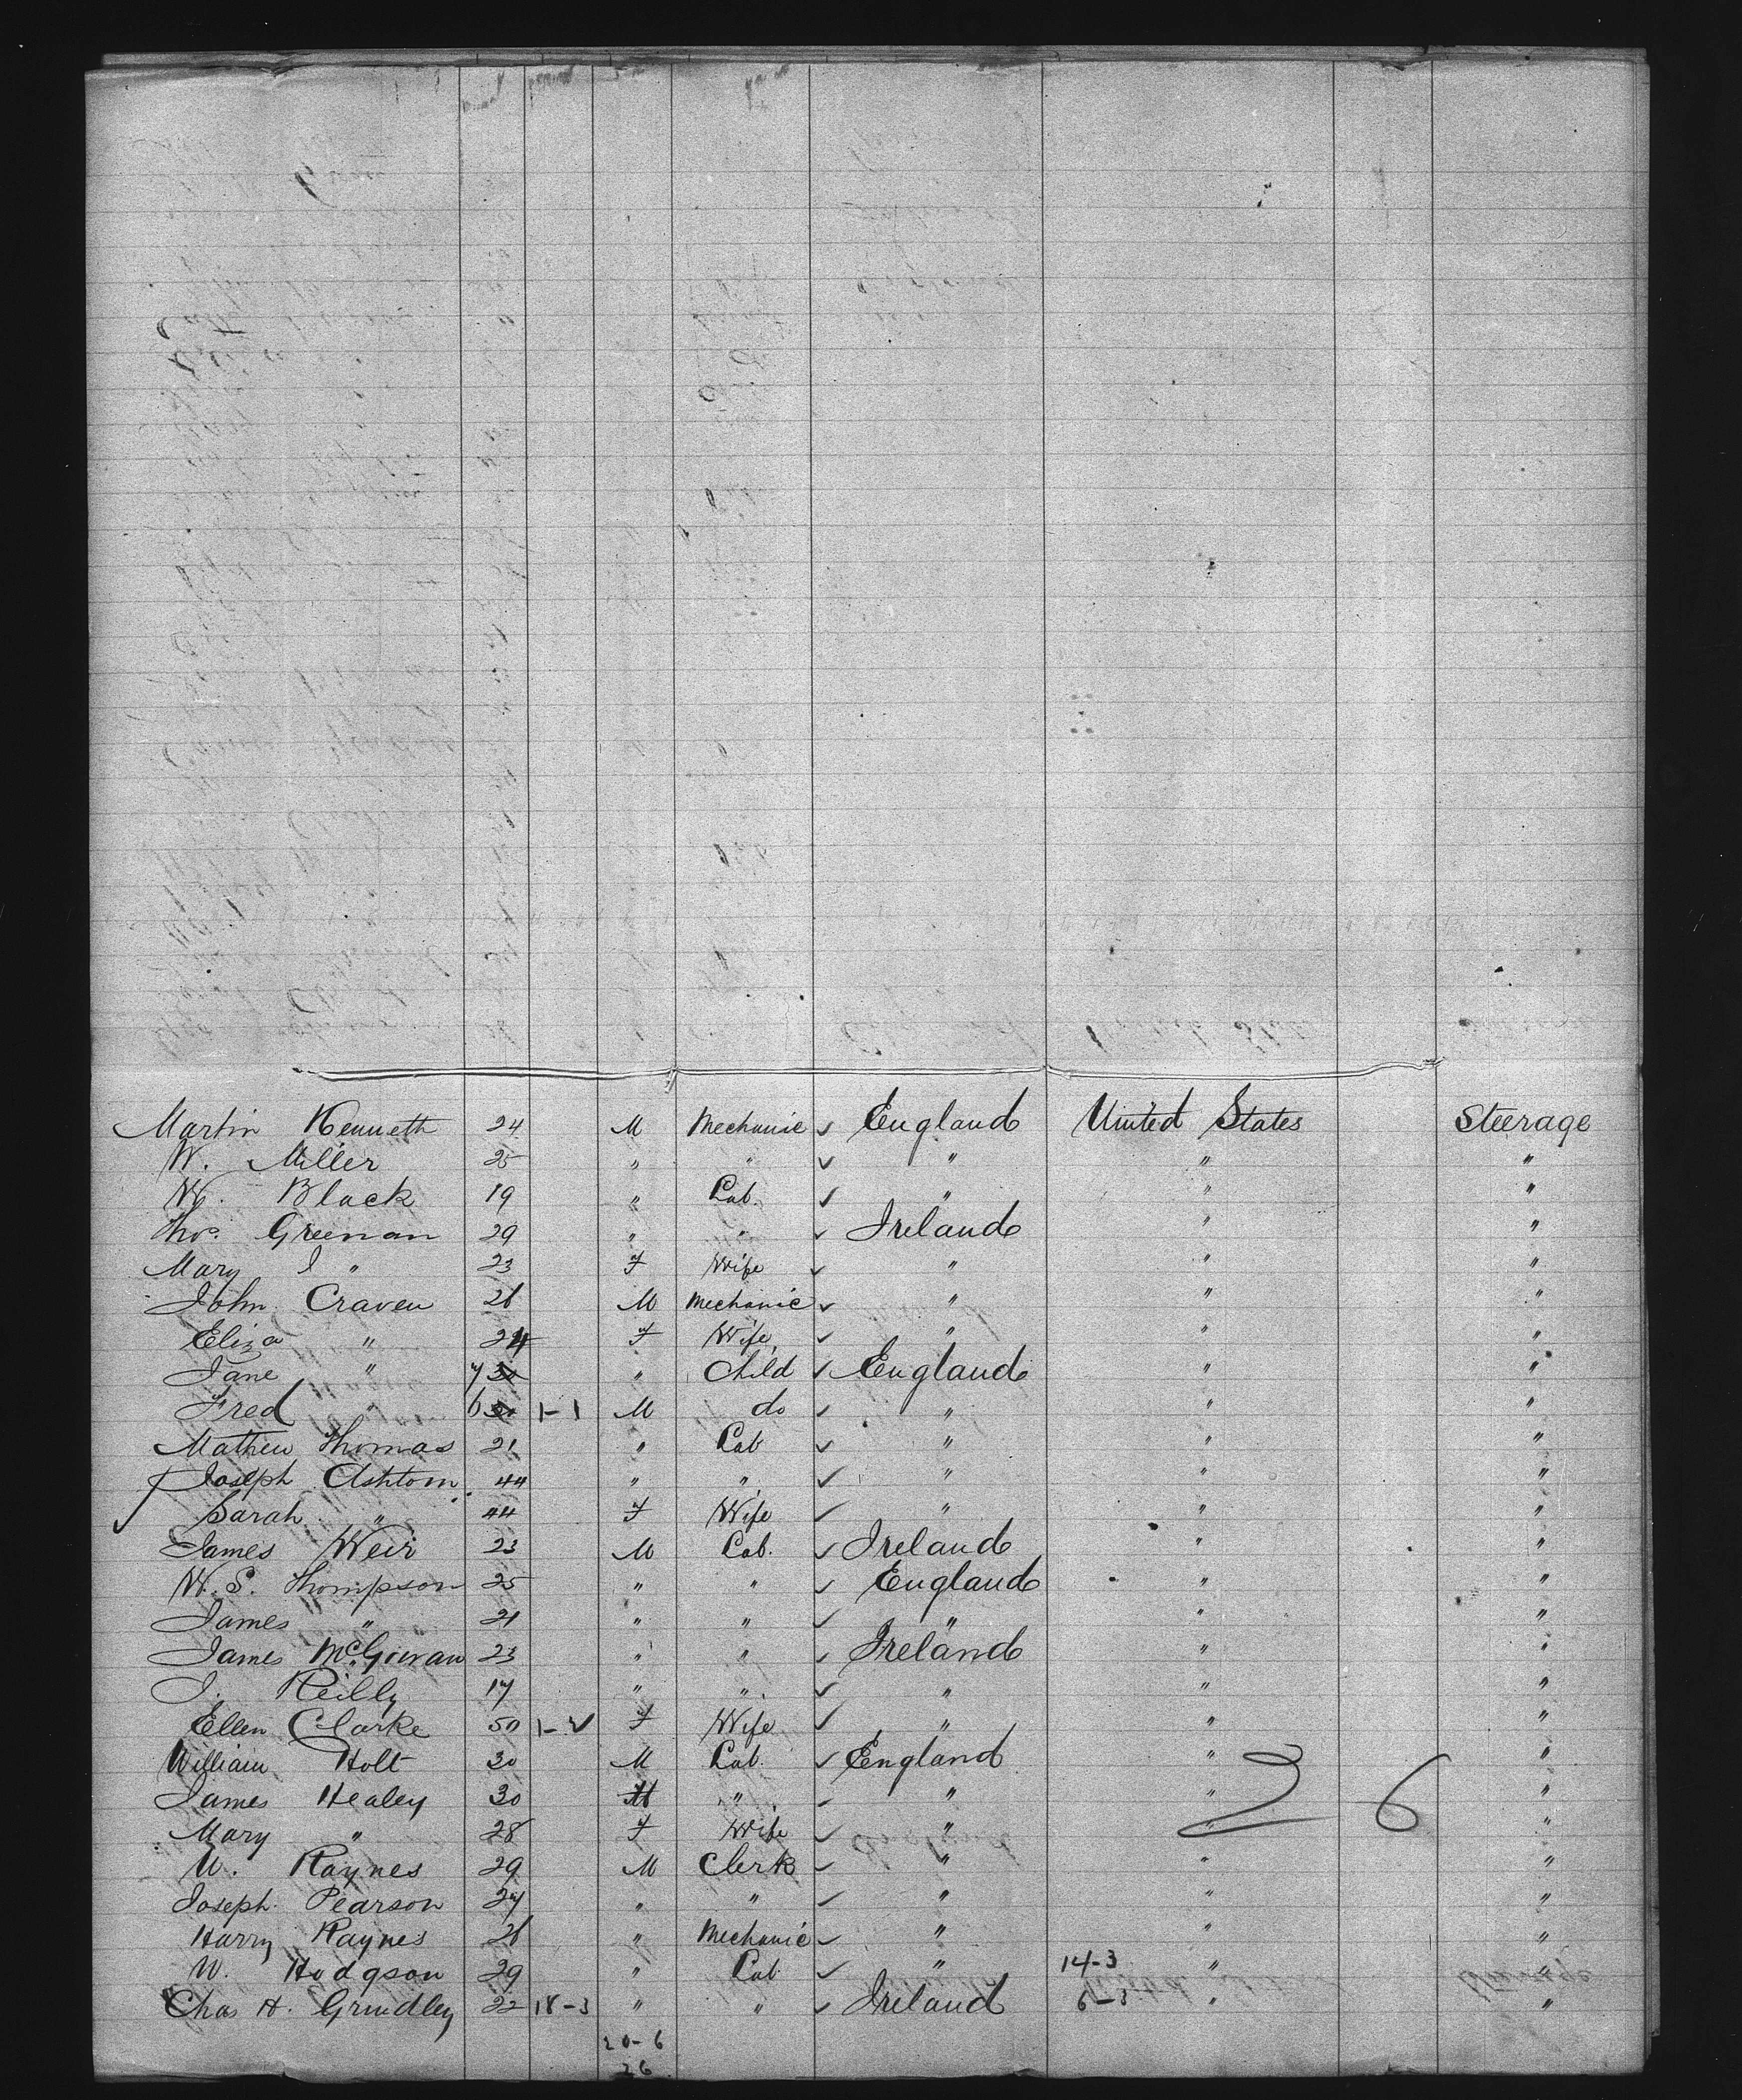 Martin Kenneth 24 M Mechanic ✓ England United States Steerage
W. Miller 25 " " ✓ " " "
W. Black 19 " Lab. ✓ " " "
Thos. Greenan 29 " " ✓ Ireland " "
Mary J " 23 F Wife ✓ " " "
John Craven 26 M Mechanic ✓ " " "
Eliza " 24 F Wife ✓ " " "
Jane " 7 " Child ✓ England " "
Fred " 6 1-1 M do ✓ " " "
Mathew Thomas 21 " Lab ✓ " " "
Joseph Ashtom. 44 " " ✓ " " "
Sarah " 44 F Wife ✓ " " "
James Weir 23 M Lab. ✓ Ireland " "
W. S. Thompson 25 " " ✓ England " "
James " 21 " " ✓ " " "
James McGowan 23 " " ✓ Ireland " "
J. Reilly 17 " " ✓ " " "
Ellen Clarke 50 1-✓ F Wife ✓ " " "
William Holt 30 M Lab. ✓ England " "
James Healey 30 M " ✓ " " "
26
Mary " 28 F Wife ✓ " " "
W. Raynes 29 M Clerk ✓ " " "
Joseph Pearson 27 " " ✓ " " "
Harry Raynes 26 " Mechanic ✓ " " "
W. Hodgson 29 " Lab ✓ " 14-3 " "
Chas H. Grundley 22 18-3 " " ✓ Ireland 6-3 " "
20-6
26